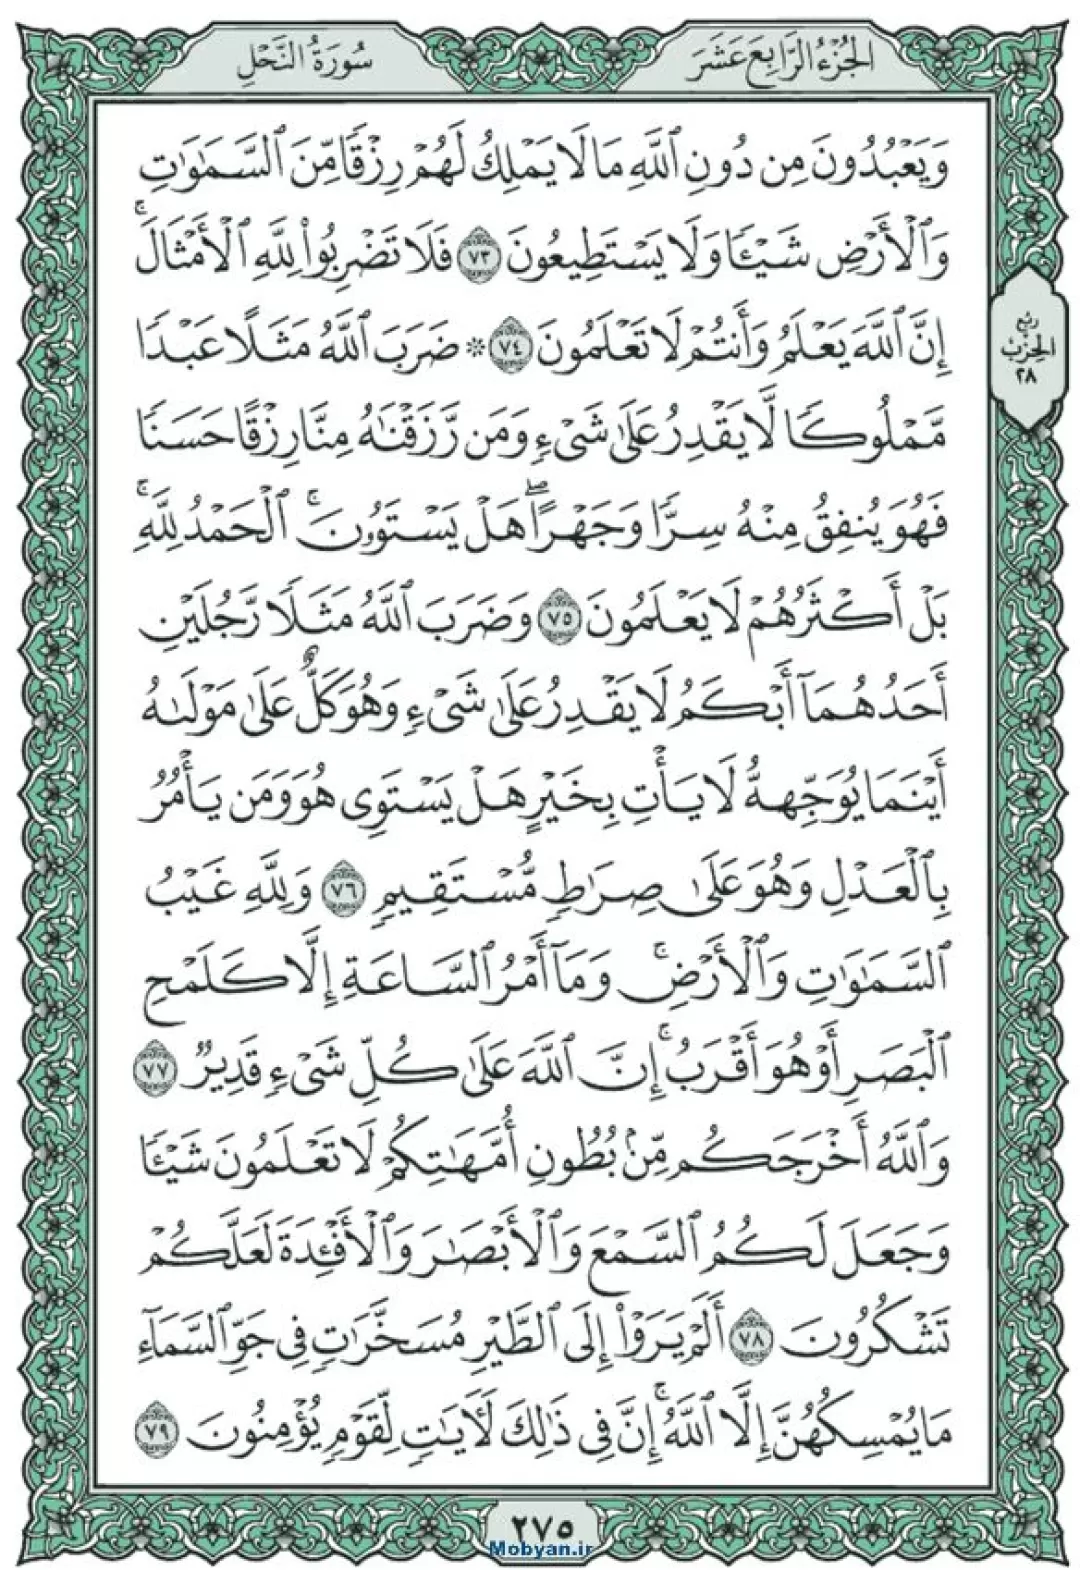 الجُزْءُ الرَّابِعَ عَشَرَ
سُورَةُ النَّحْلِ
وَيَعْبُدُونَ مِن دُونِ ٱللَّهِ مَا لَا يَمْلِكُ لَهُمْ رِزْقًا مِّنَ ٱلسَّمَٰوَٰتِ
وَٱلْأَرْضِ شَيْـًٔا وَلَا يَسْتَطِيعُونَ ٧٣ فَلَا تَضْرِبُوا۟ لِلَّهِ ٱلْأَمْثَالَ ۚ
إِنَّ ٱللَّهَ يَعْلَمُ وَأَنتُمْ لَا تَعْلَمُونَ ٧٤ * ضَرَبَ ٱللَّهُ مَثَلًا عَبْدًا
مَّمْلُوكًا لَّا يَقْدِرُ عَلَىٰ شَىْءٍ وَمَن رَّزَقْنَٰهُ مِنَّا رِزْقًا حَسَنًا
فَهُوَ يُنفِقُ مِنْهُ سِرًّا وَجَهْرًا ۖ هَلْ يَسْتَوُۥنَ ۚ ٱلْحَمْدُ لِلَّهِ ۚ
بَلْ أَكْثَرُهُمْ لَا يَعْلَمُونَ ٧٥ وَضَرَبَ ٱللَّهُ مَثَلًا رَّجُلَيْنِ
أَحَدُهُمَآ أَبْكَمُ لَا يَقْدِرُ عَلَىٰ شَىْءٍ وَهُوَ كَلٌّ عَلَىٰ مَوْلَىٰهُ
أَيْنَمَا يُوَجِّههُّ لَا يَأْتِ بِخَيْرٍ هَلْ يَسْتَوِى هُوَ وَمَن يَأْمُرُ
بِٱلْعَدْلِ وَهُوَ عَلَىٰ صِرَٰطٍ مُّسْتَقِيمٍ ٧٦ وَلِلَّهِ غَيْبُ
ٱلسَّمَٰوَٰتِ وَٱلْأَرْضِ ۚ وَمَآ أَمْرُ ٱلسَّاعَةِ إِلَّا كَلَمْحِ
ٱلْبَصَرِ أَوْ هُوَ أَقْرَبُ ۚ إِنَّ ٱللَّهَ عَلَىٰ كُلِّ شَىْءٍ قَدِيرٌ ٧٧
وَٱللَّهُ أَخْرَجَكُم مِّنۢ بُطُونِ أُمَّهَٰتِكُمْ لَا تَعْلَمُونَ شَيْـًٔا
وَجَعَلَ لَكُمُ ٱلسَّمْعَ وَٱلْأَبْصَٰرَ وَٱلْأَفْـِٔدَةَ لَعَلَّكُمْ
تَشْكُرُونَ ٧٨ أَلَمْ يَرَوْا۟ إِلَى ٱلطَّيْرِ مُسَخَّرَٰتٍ فِى جَوِّ ٱلسَّمَآءِ
مَا يُمْسِكُهُنَّ إِلَّا ٱللَّهُ ۚ إِنَّ فِى ذَٰلِكَ لَءَايَٰتٍ لِّقَوْمٍ يُؤْمِنُونَ ٧٩
رُبع
الحِزْب
٢٨
٢٧٥
Mobyan.ir